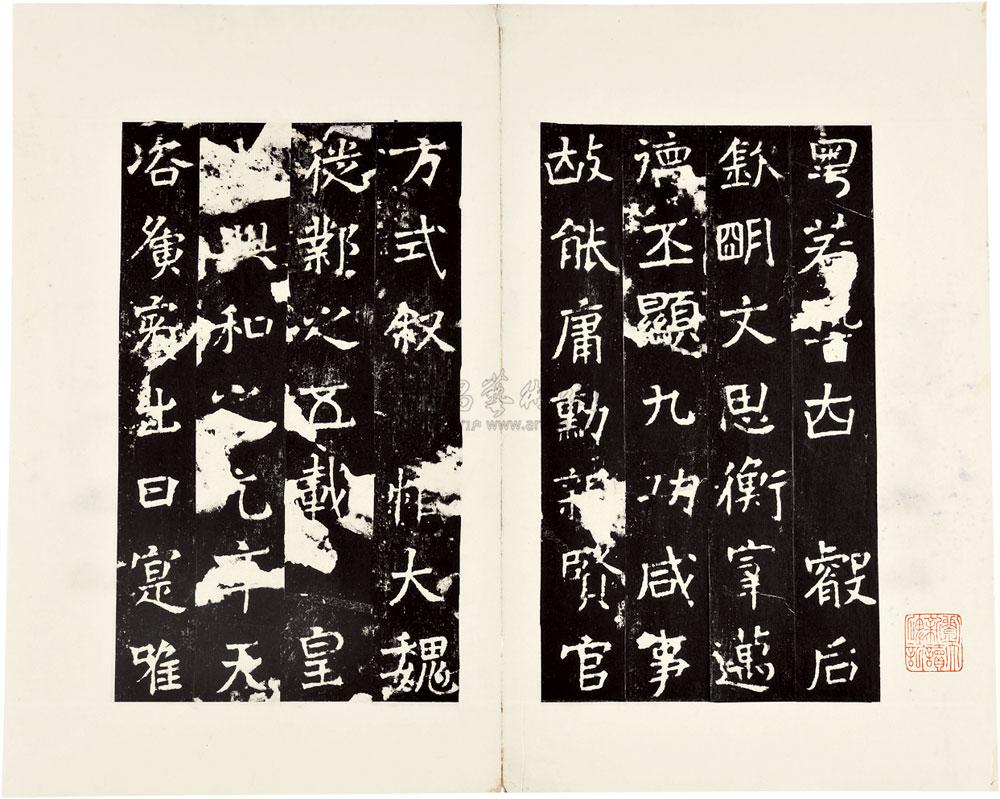 粤若稽古叡后
欽明文思衡宰邁
德丕顯九功咸事
故能庸勳親賢官
方式叙惟大魏
徙鄴之五載皇
興和之元年天
咨寮出曰寔唯